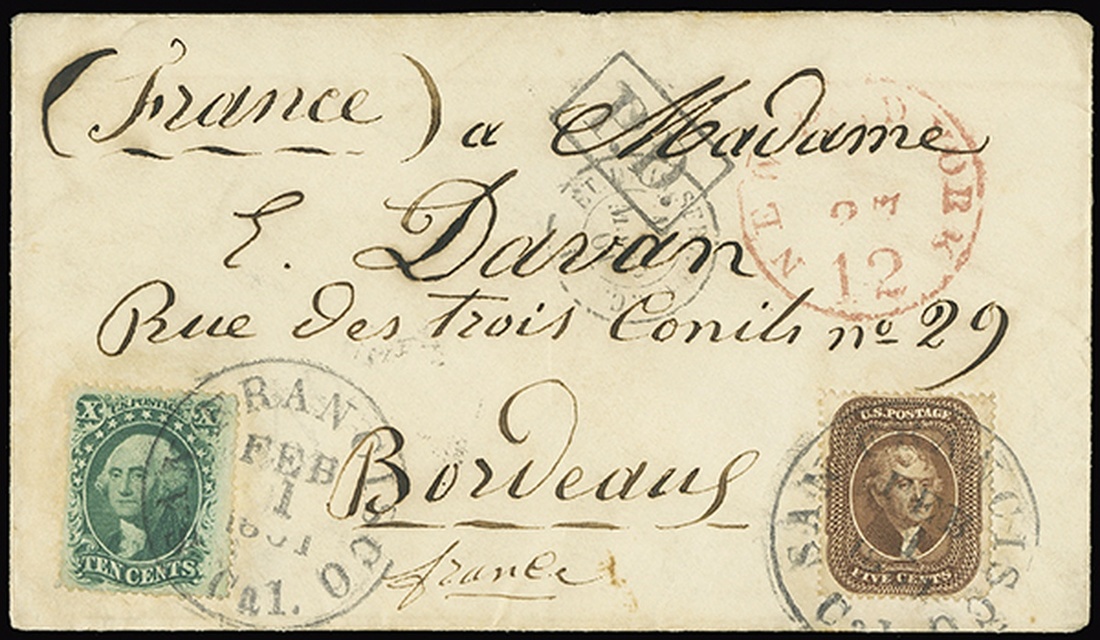 (France) a Madame
E. Davan
Rue des trois Conils no 29
Bordeaux
france
P.D.
NEW PAID YORK
12
SAN FRANCISCO
FEB
1
1861
Cal.
X U.S. POSTAGE X
TEN CENTS
U.S. POSTAGE
FIVE CENTS
SAN FRANCISCO
Cal.